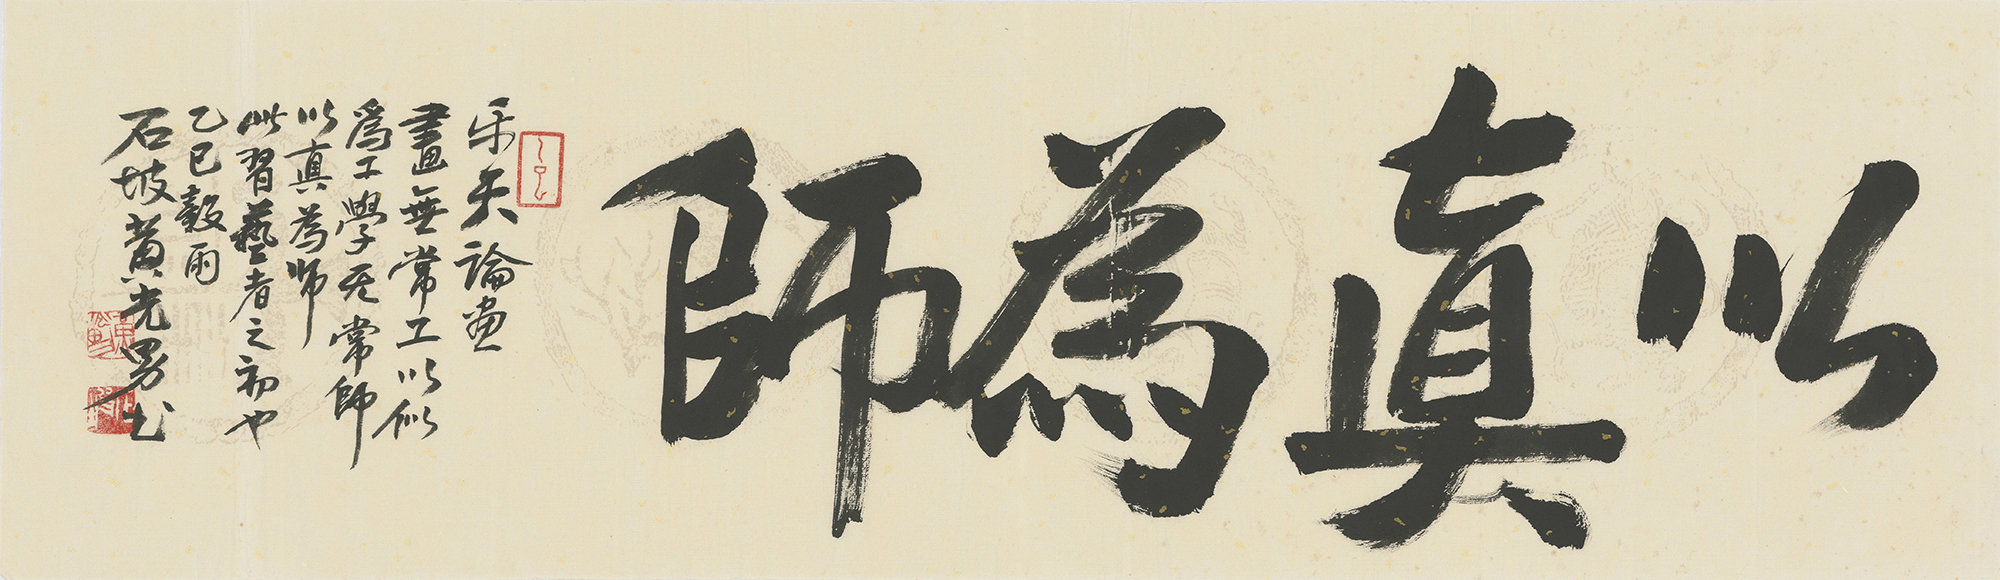 以真為師
乐天論画
畫無常工以似
為工學无常師
以真為師
此習藝者之初也
乙巳穀雨
石坡黄光男书